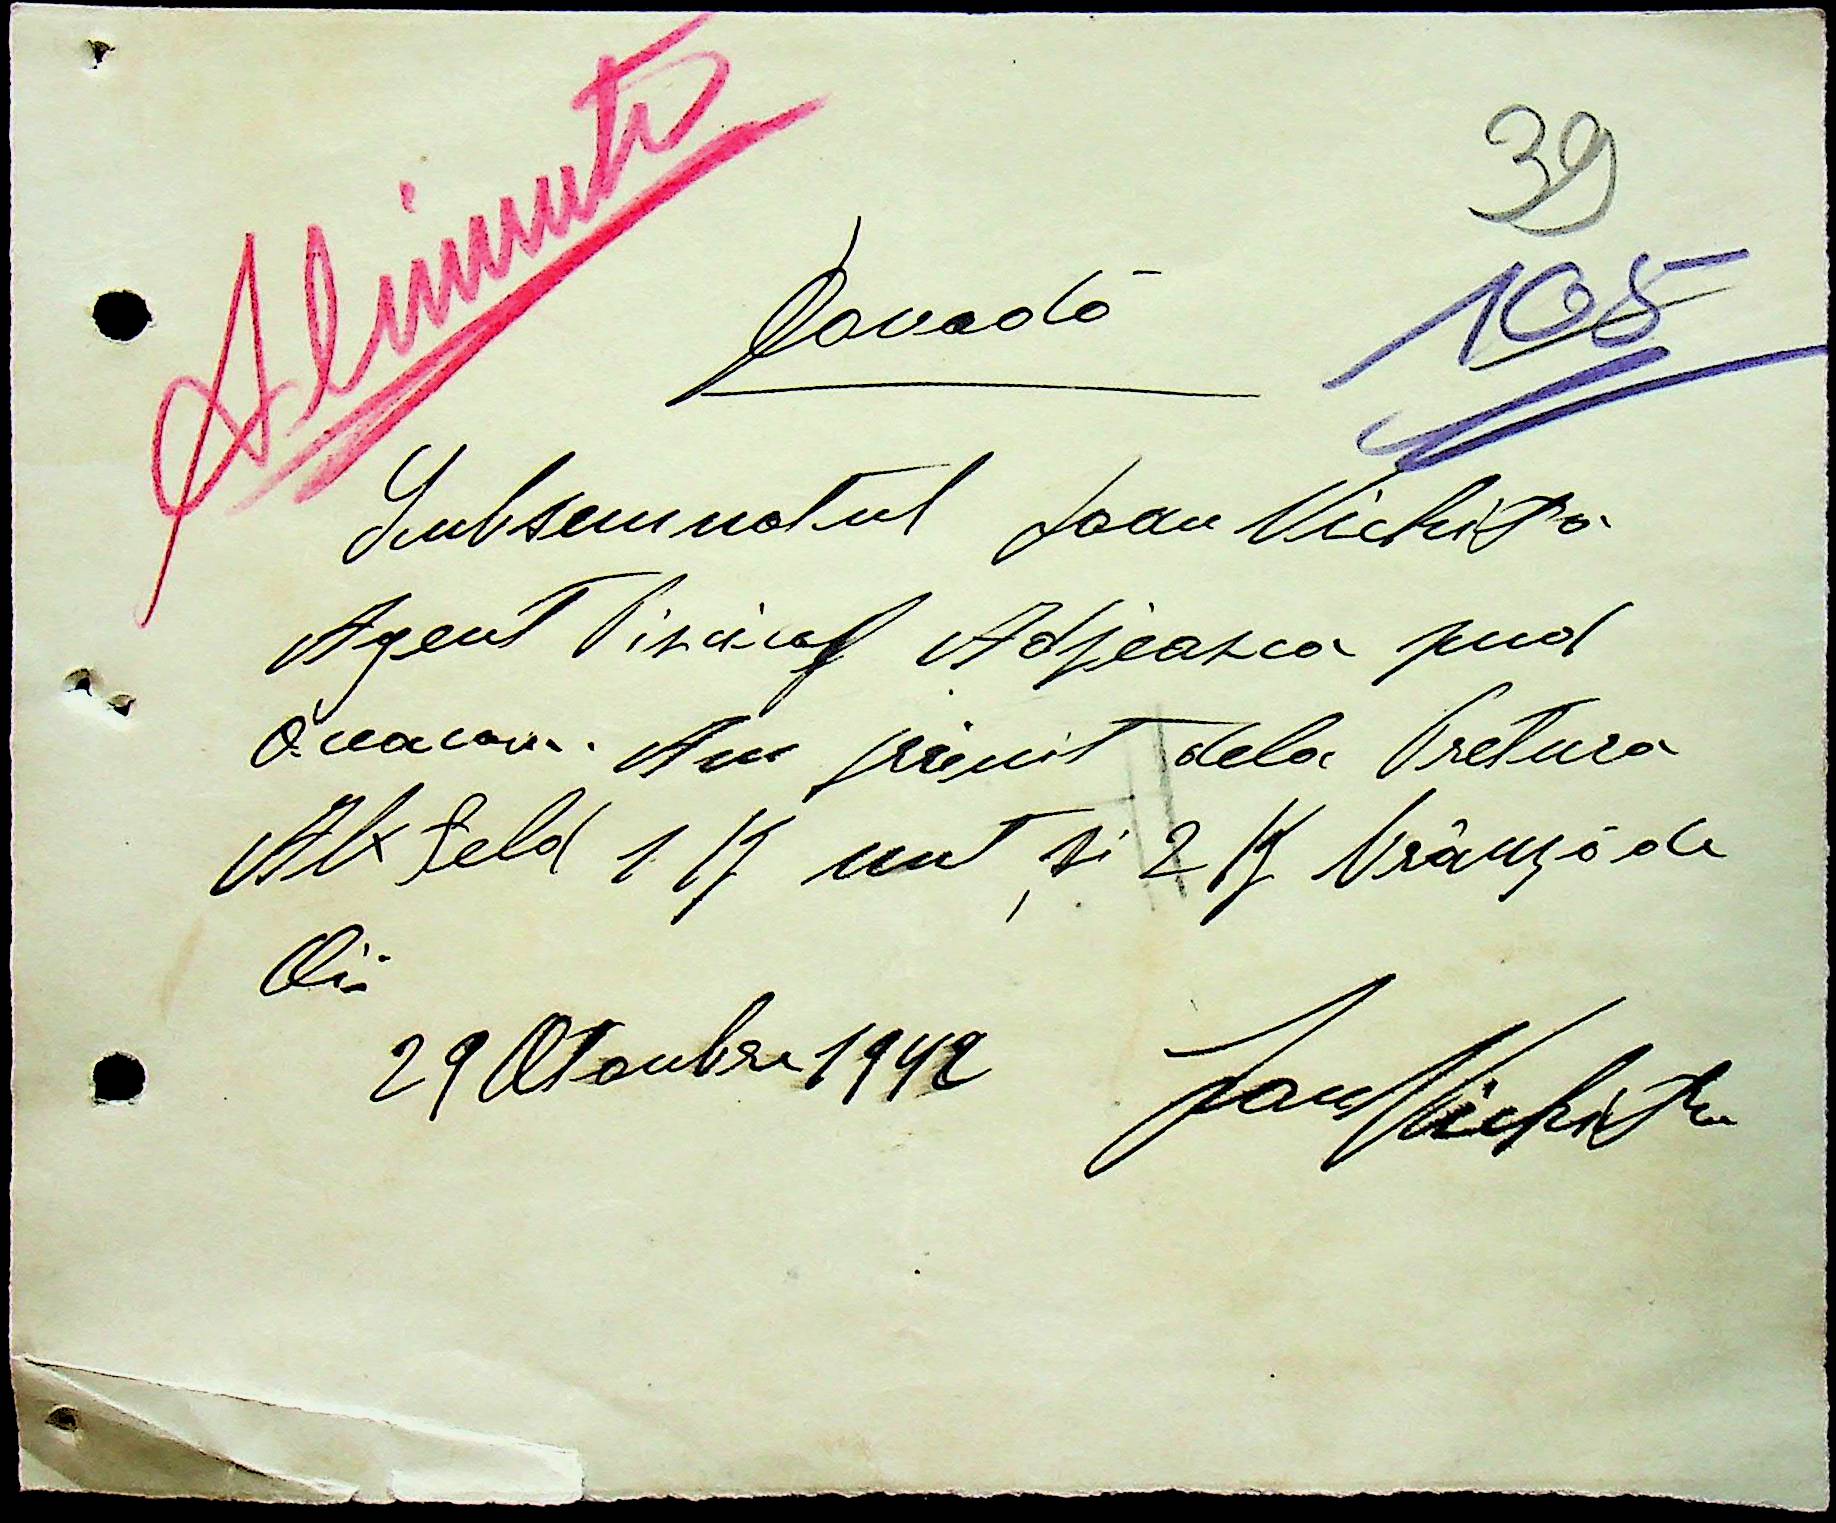 Alimente
39
105
Dovadă
Subsemnatul Ioan Nichita
Agent Fiscal Adjeasca jud
Am primit dela Pretura
Alx feld 1 Kg unt, si 2 Kg brânză de
Oi
29 Octombre 1942
Ioan Nichita